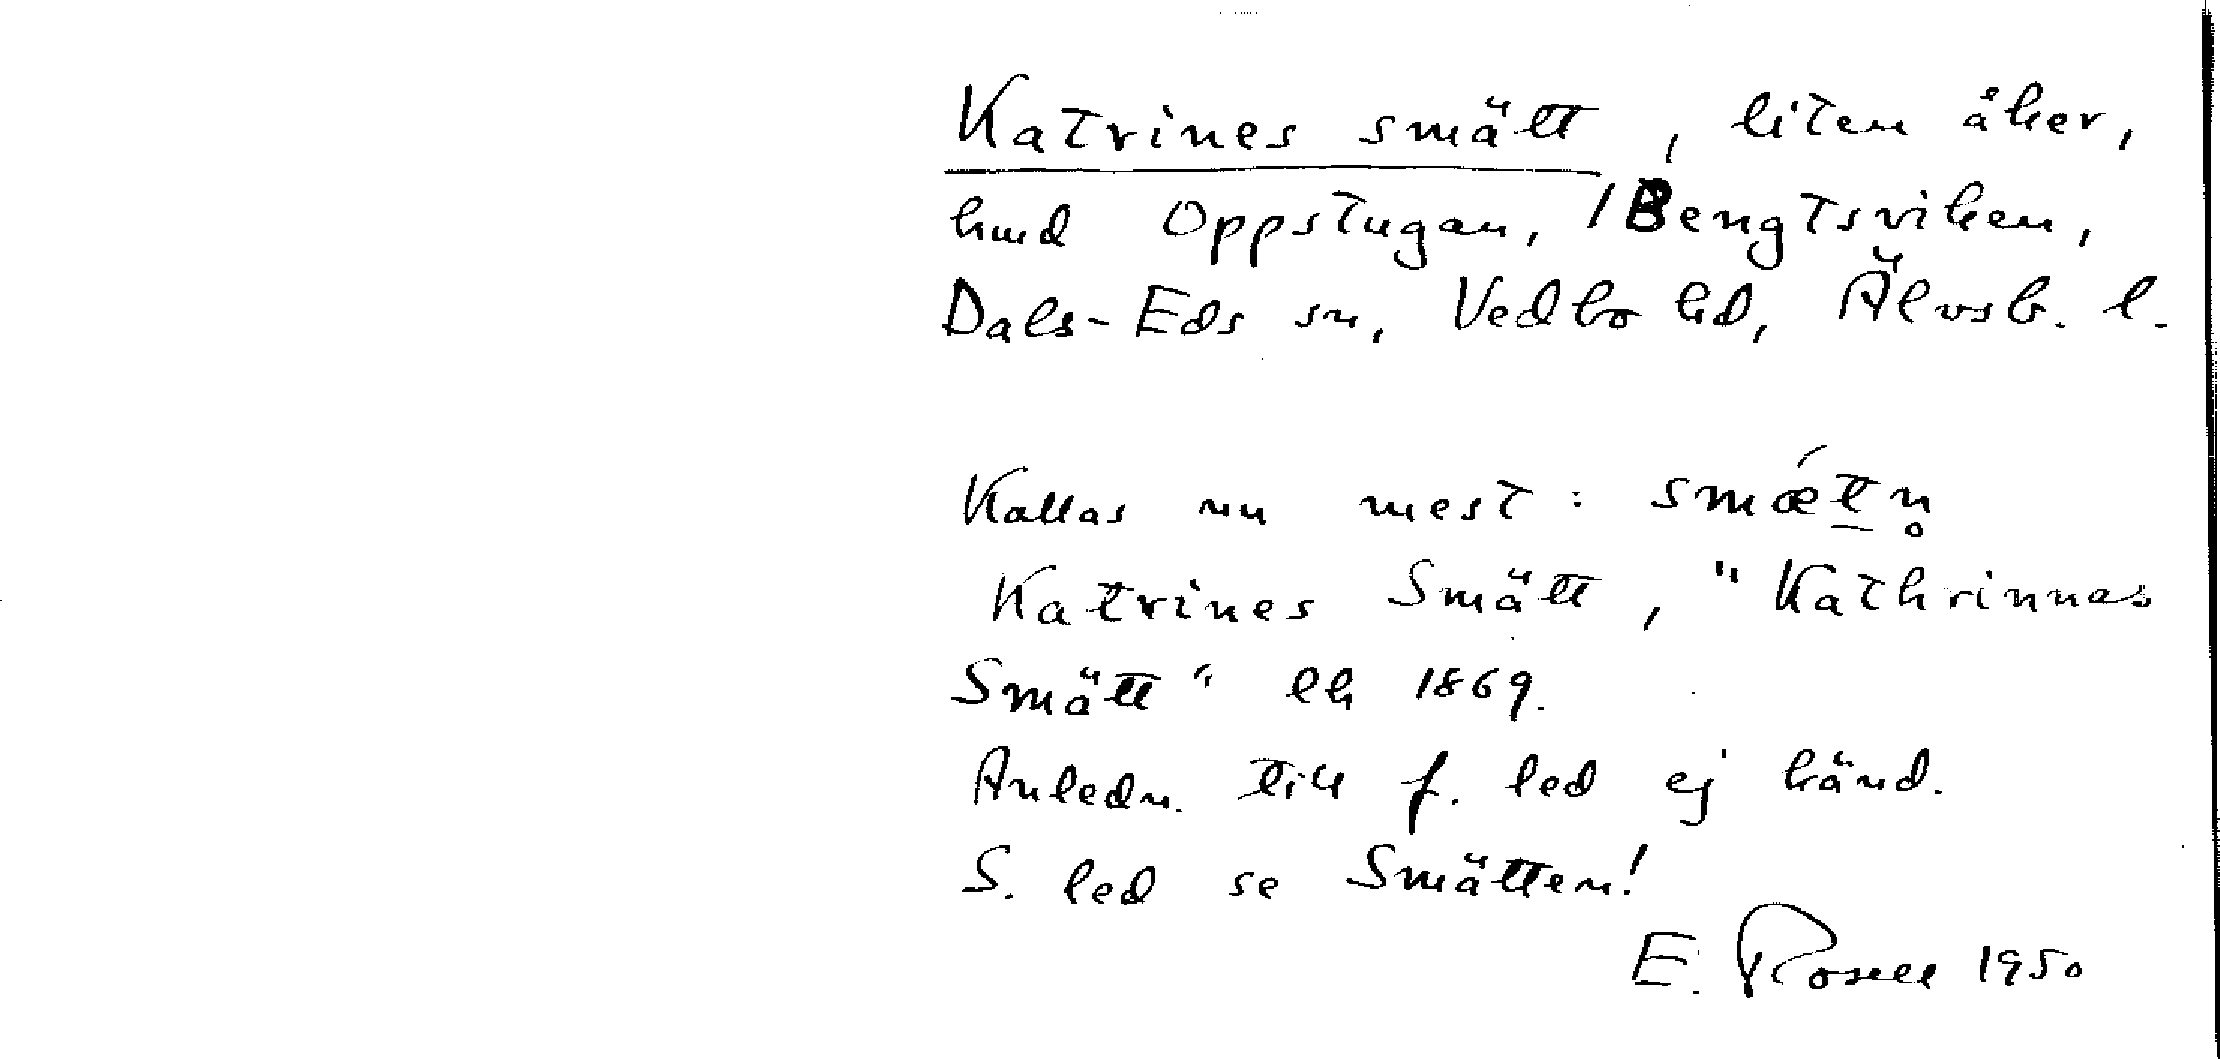 Katrines smätt, liten åker,
hmd Oppstugan, 1 Bengtsviken,
Dals-Eds sn, Vedbo hd, Älvsb. l.
Kallas nu mest: smǽtn̥
Katrines Smätt, "Kathrinnas
Smätt" lh 1869.
Anledn. till f. led ej känd.
S. led se Smätten!
E. Rosell 1950